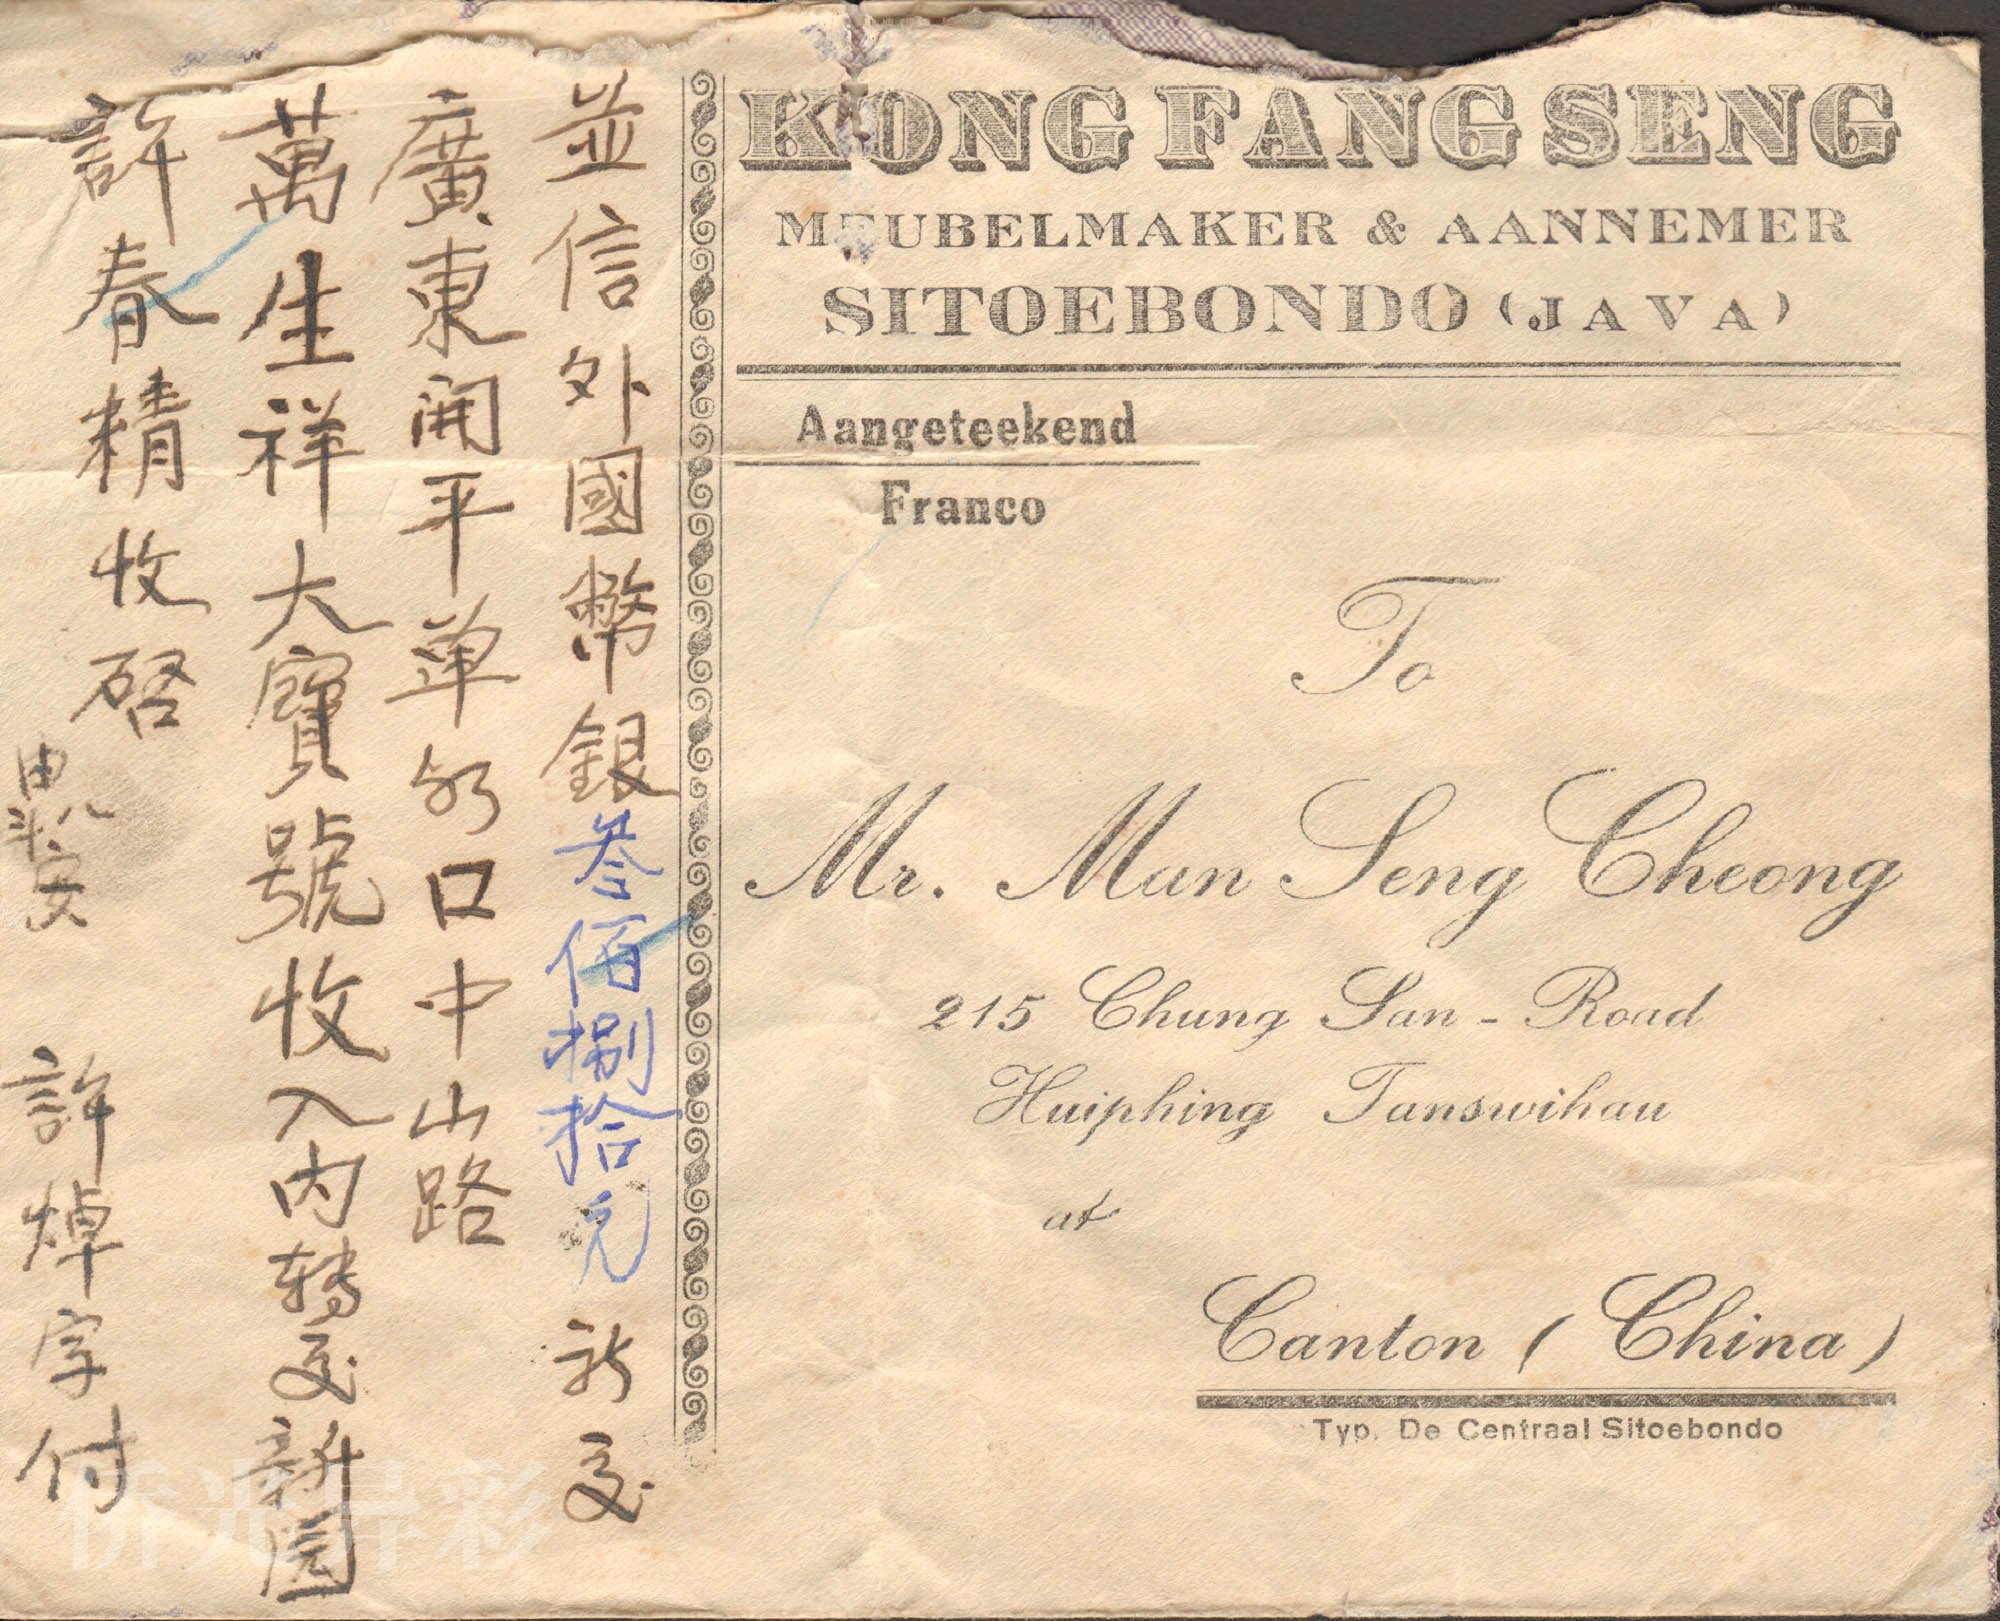 KONG FANG SENG
MEUBELMAKER & AANNEMER
SITOEBONDO (JAVA)
Aangeteekend
Franco
To
Mr. Man Seng Cheong
215 Chung San - Road
Huiphing Tanswihau
at
Canton (China)
Typ. De Centraal Sitoebondo
並信外國幣銀叁佰捌拾元祈交
廣東開平單水口中山路
萬生祥大寶號收入内转交新園
許春精收啓
平安
許焯字付
侨光异彩